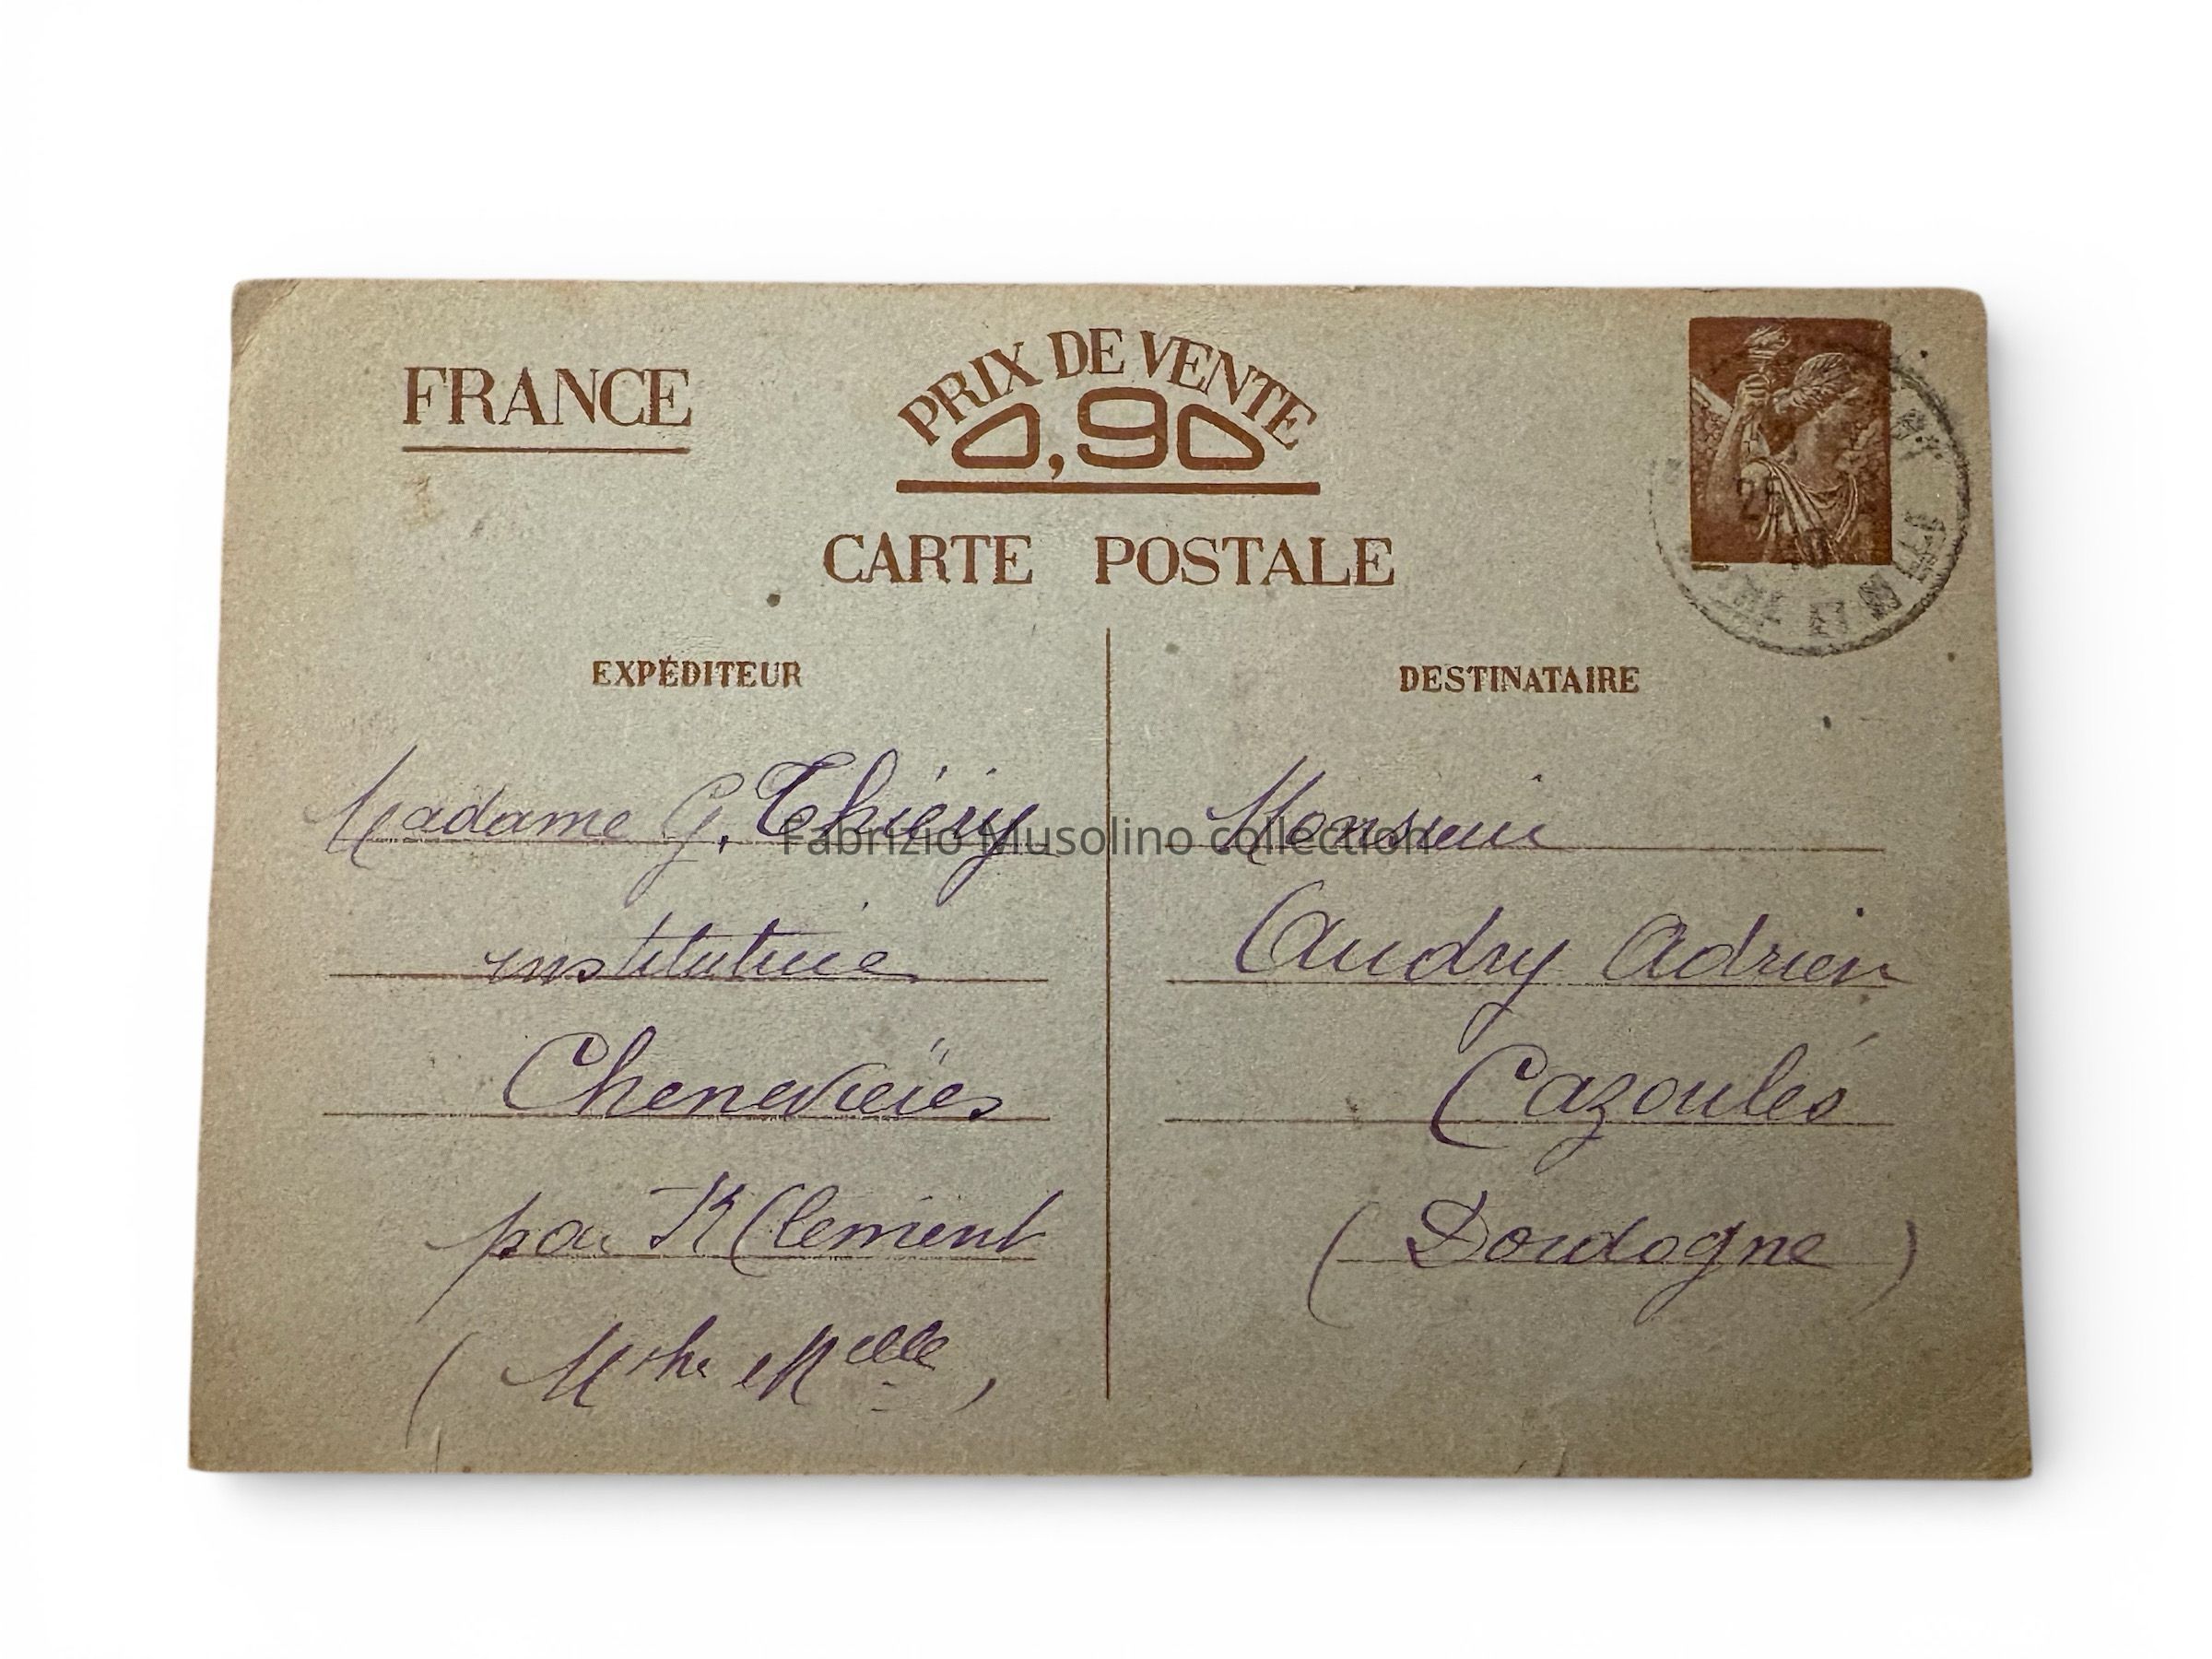 FRANCE
PRIX DE VENTE
0,90
CARTE POSTALE
EXPÉDITEUR
Madame G. Thiéry
institutrice
Chenevières
par St Clément
(Mthe et Melle)
DESTINATAIRE
Monsieur
Audry Adrien
Cazoulès
(Dordogne)
Fabrizio Musolino collection
25
MTHE ET MLLE